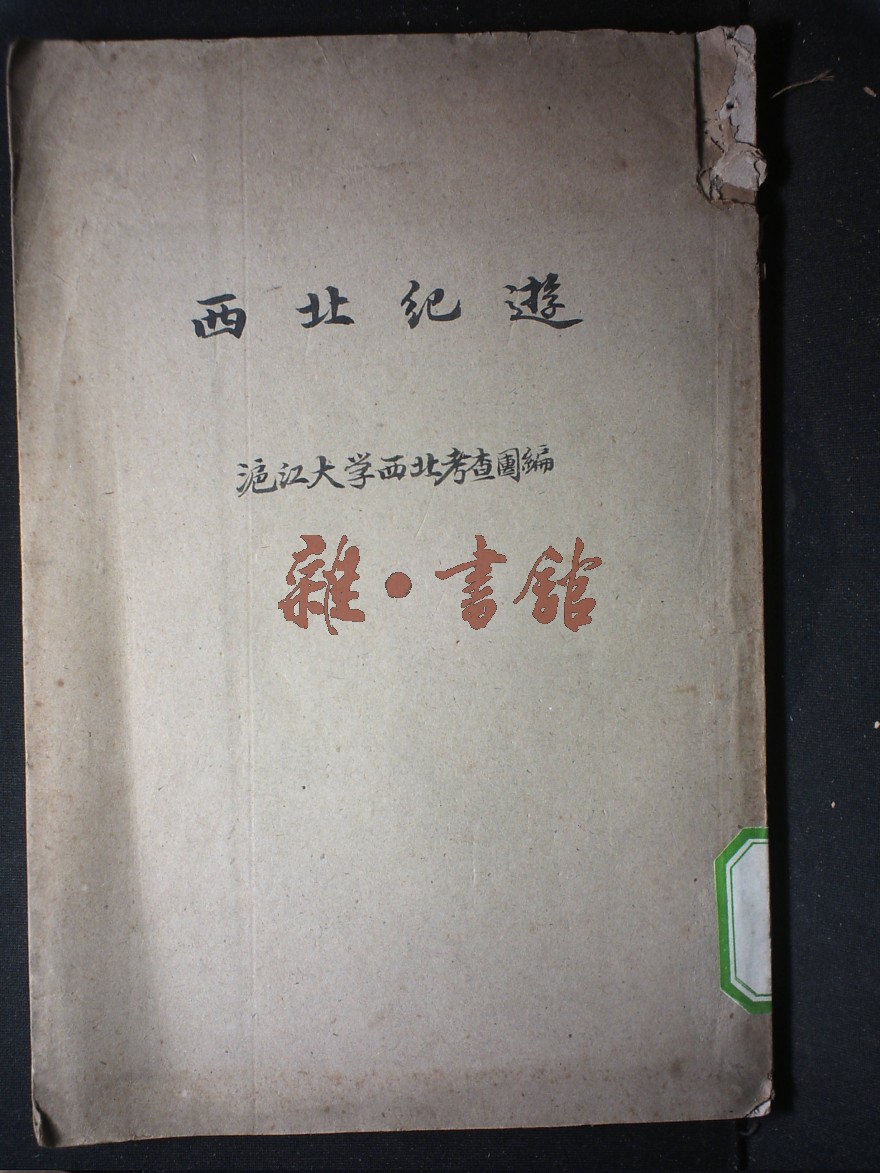 西北紀遊
滬江大学西北考查團編
雜·書館